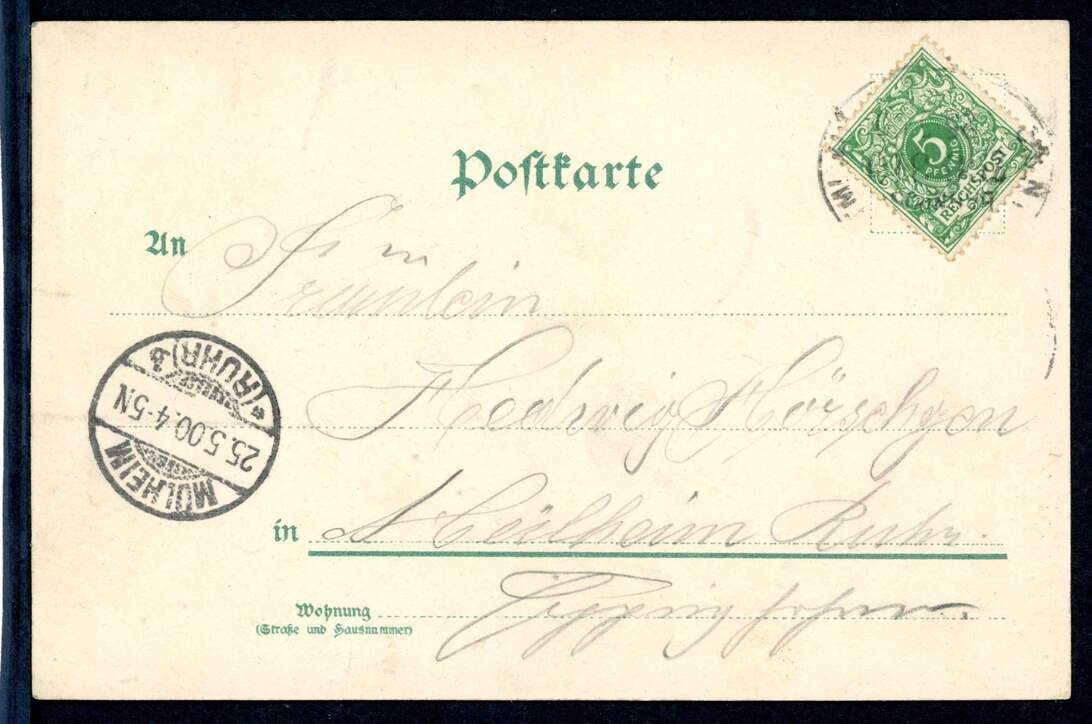 Postkarte
5
PFENNIG
REICHSPOST
An
Fräulein
Hedwig Hörschgen
in Mülheim Ruhr.
Wohnung
(Straße und Hausnummer)
MÜLHEIM
25.5.00.4-5N
*(RUHR)b